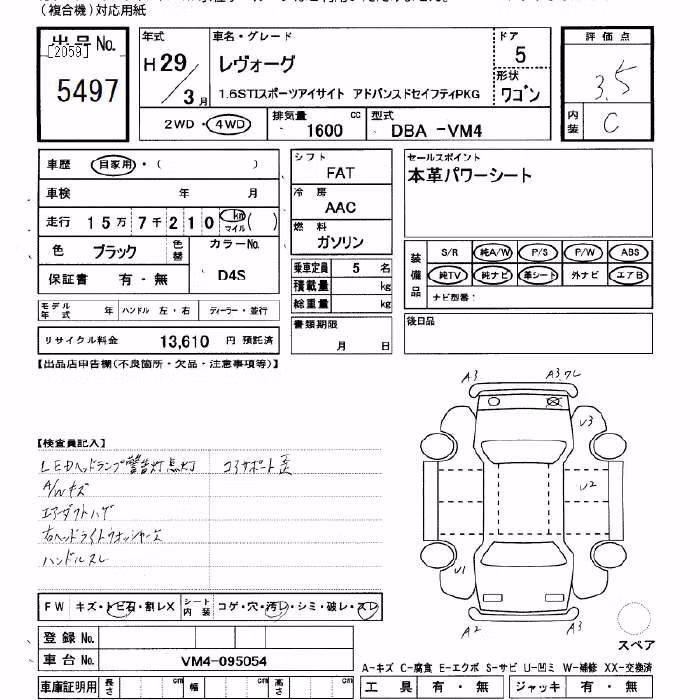 （複合機）対応用紙
出品No.
[2059]
5497
年式
H29/3月
車名・グレード
レヴォーグ
1.6STIスポーツアイサイト アドバンスドセイフティPKG
ドア
5
形状
ワゴン
2WD・4WD
排気量
1600 cc
型式
DBA -VM4
評価点
3.5
内装
C
車歴 自家用・( )
車検 年 月
走行 15万7千210 km マイル ( )
色 ブラック 色替
カラーNo.
D4S
保証書 有・無
シフト
FAT
冷房
AAC
燃料
ガソリン
乗車定員 5 名
積載量 kg
総重量 kg
セールスポイント
本革パワーシート
装備品
S/R 純A/W P/S P/W ABS
純TV 純ナビ 革シート 外ナビ エアB
ナビ型番：
モデル年式 年 ハンドル 左・右 ディーラー・並行
リサイクル料金 13,610 円 預託済
書類期限
月 日
後日品
【出品店申告欄(不良箇所・欠品・注意事項等)】
【検査員記入】
LEDヘッドランプ警告灯点灯 コアサポート歪
A/Wキズ
エアダクトハガ
右ヘッドライトウォッシャーズ
ハンドルスレ
A3
A3 フレ
U3
U2
U1
A2
A3
スペア
FW キズ・トビ石・割レX シート内装 コゲ・穴・汚レ・シミ・破レ・スレ
登録No.
車台No. VM4-095054
A-キズ C-腐食 E-エクボ S-サビ U-凹ミ W-補修 XX-交換済
車庫証明用 長さ cm 幅 cm 高さ cm
工具 有・無 ジャッキ 有・無